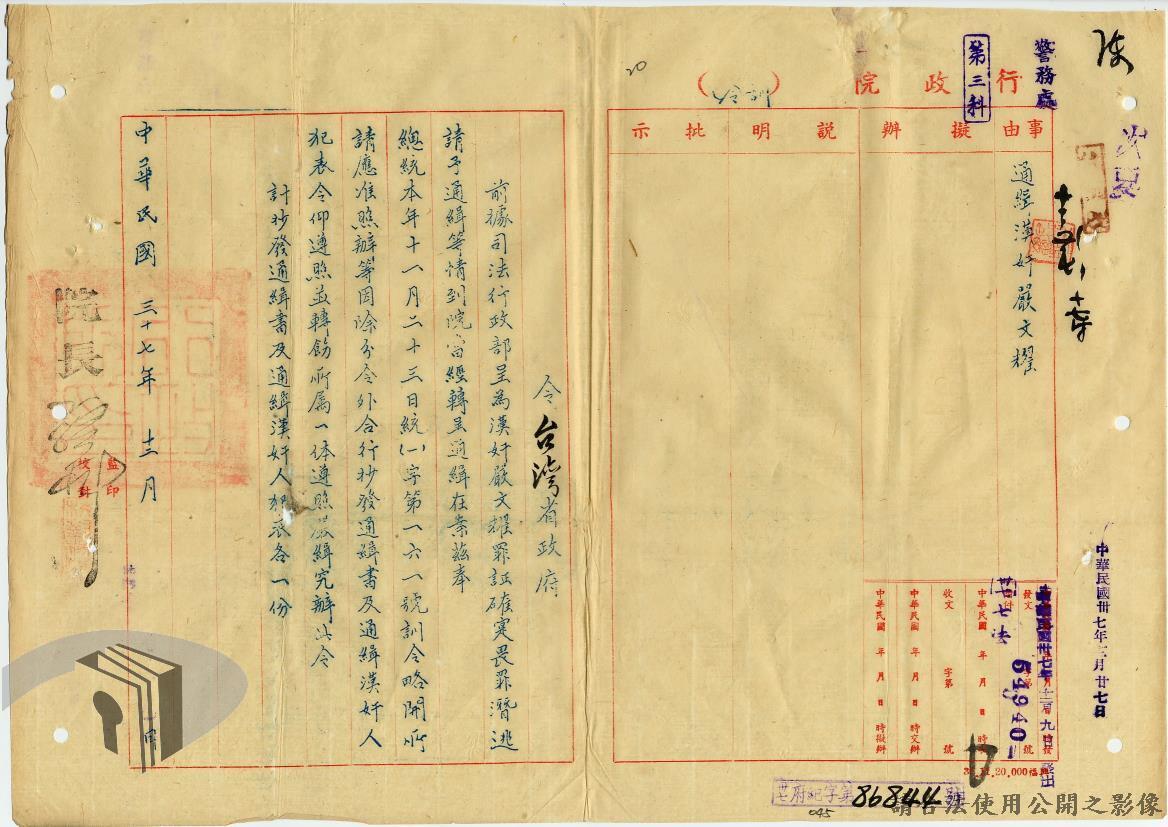 行政院（訓令）
警務處
第三科
事由
擬辦
說明
批示
通緝漢奸嚴文耀
中華民國卅七年
發文
字第
號
收文
字第
號
中華民國 年 月 日 時交辦
中華民國 年 月 日 時擬辦
卅七法
54949
府紀字第86844號
045
20
令台灣省政府
前據司法行政部呈為漢奸嚴文耀罪証確實畏罪潛逃
請予通緝等情到院當經轉呈通緝在案茲奉
總統本年十一月二十三日統㈠字第一六一號訓令略開所
請應准照辦等因除分令外合行抄發通緝書及通緝漢奸人
犯表令仰遵照並轉飭所屬一体遵照嚴緝究辦此令
計抄發通緝書及通緝漢奸人犯表各一份
院長孫
中華民國三十七年十二月
監印
校對
請合法使用公開之影像